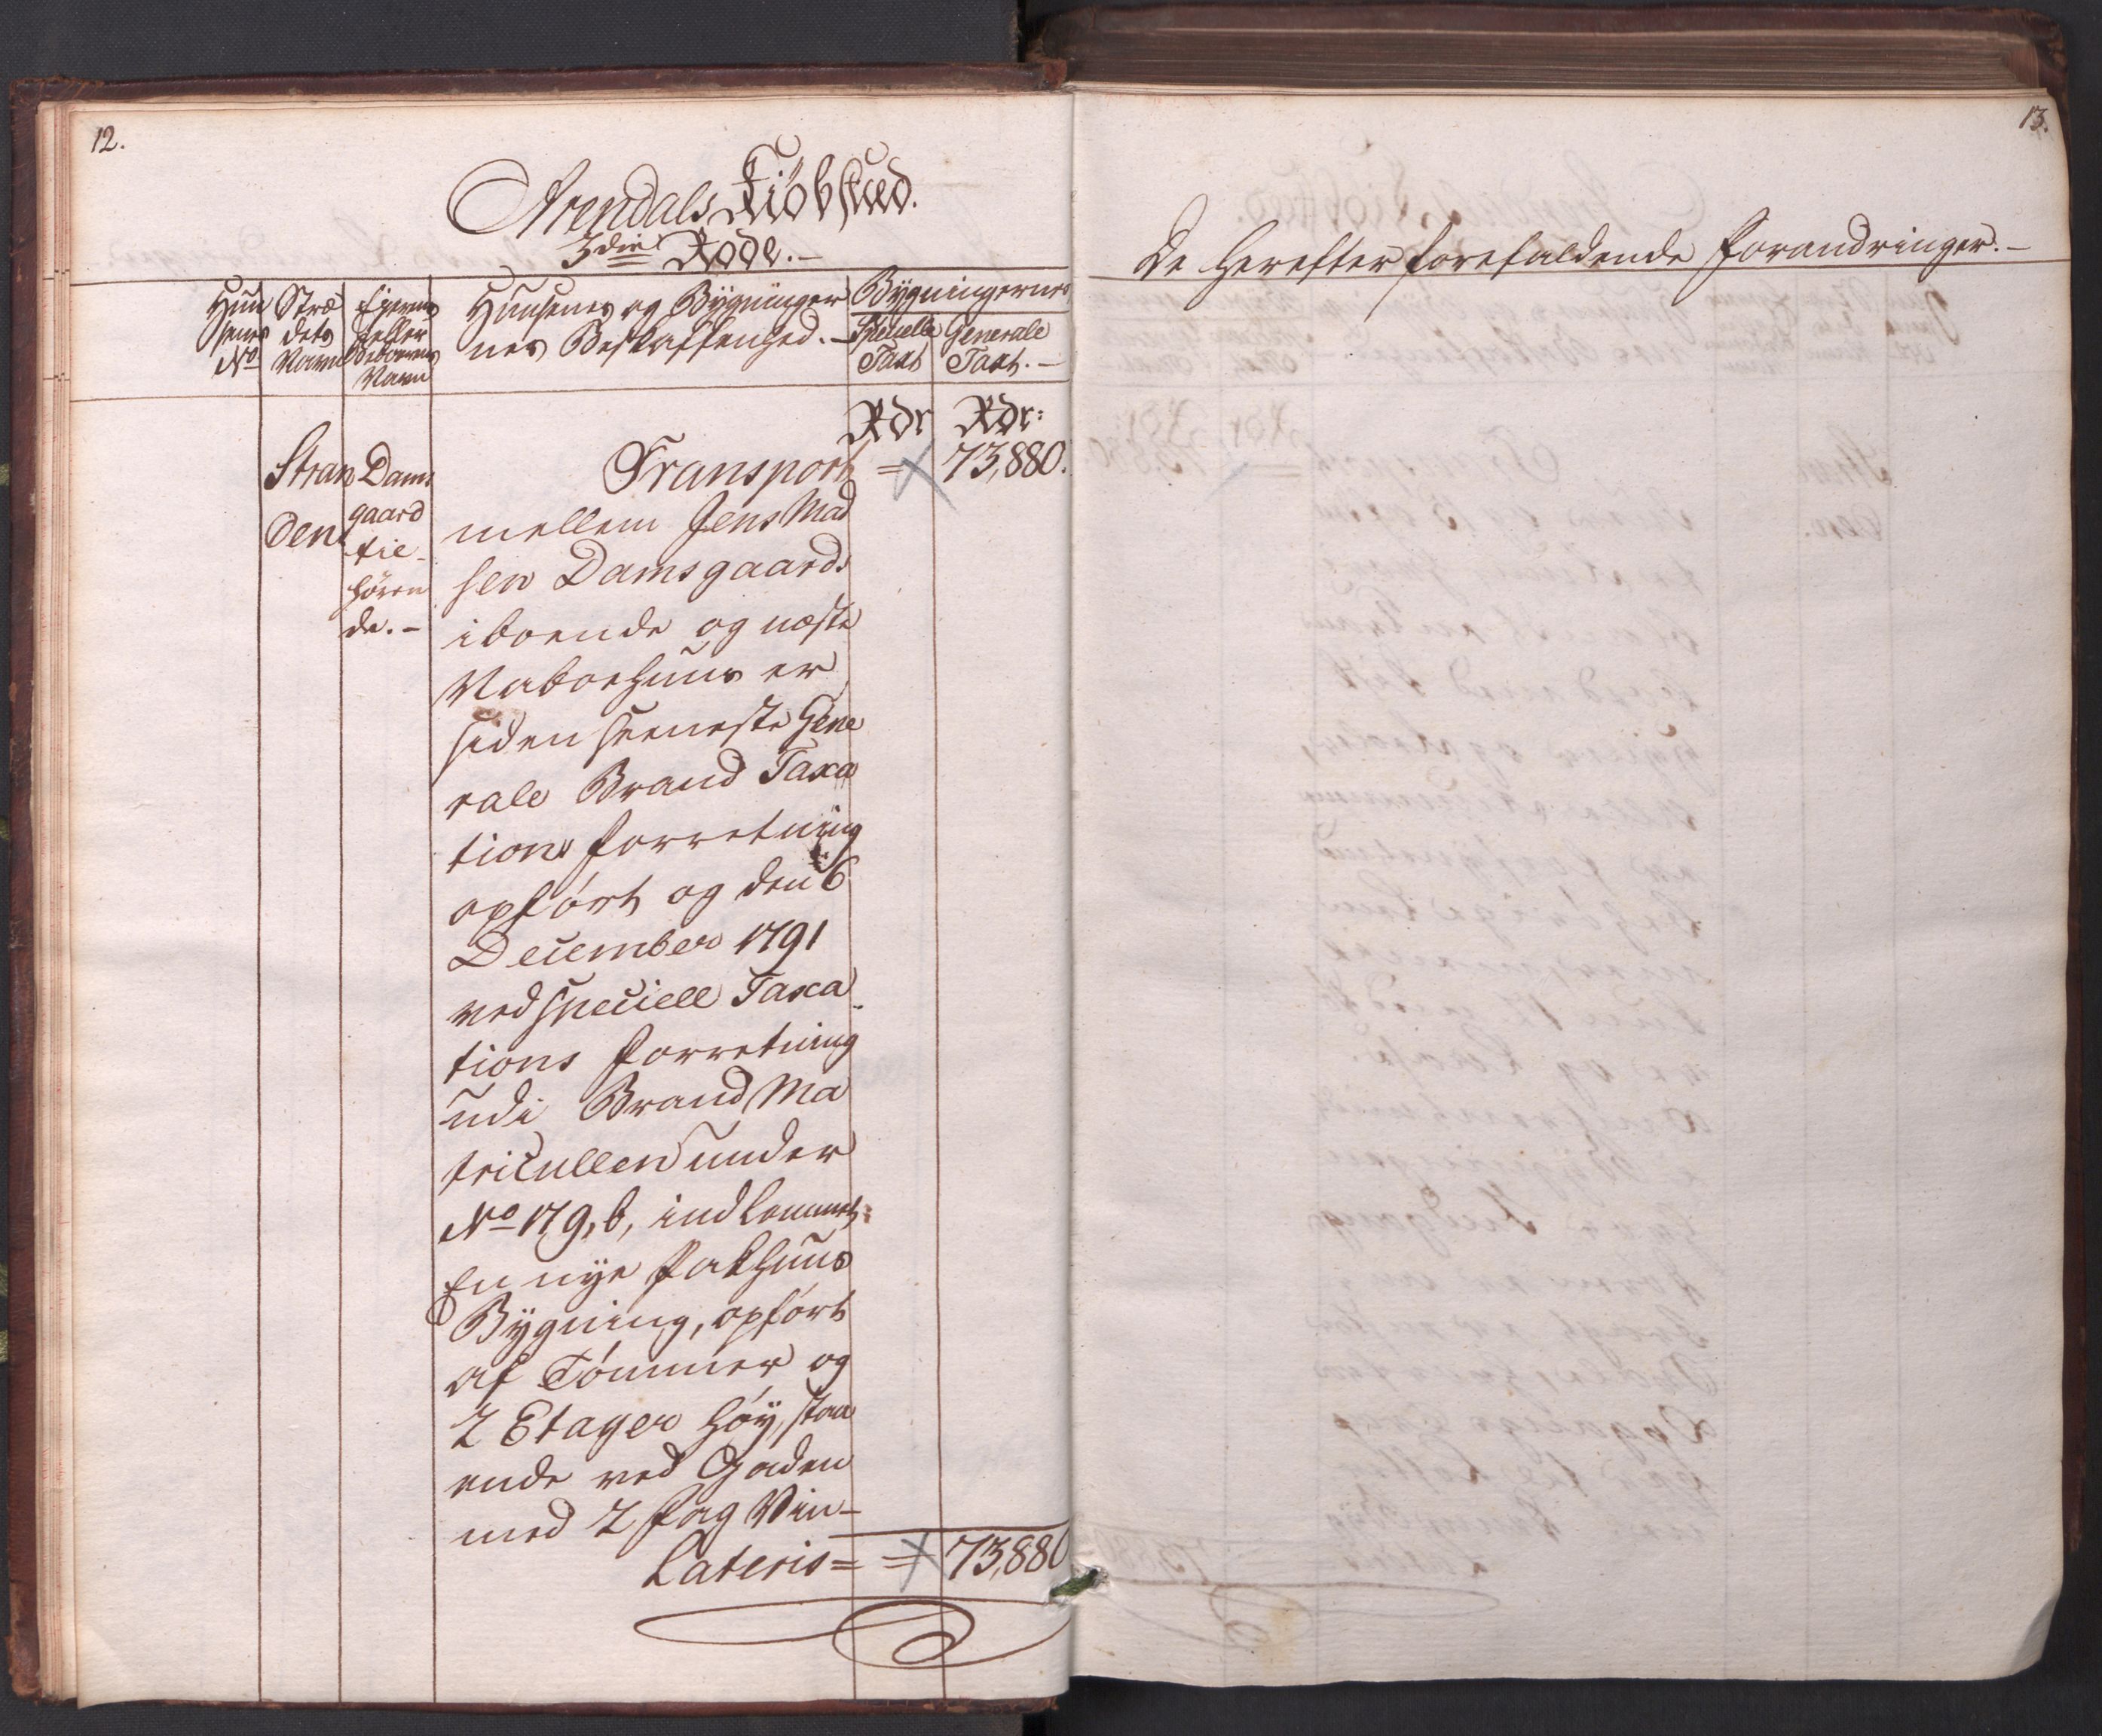 12.
Arendals Kiöbstæd.
3die Rode.-
Huu
senes
No
Stræ
dets
Navn
Ejerens
eller
Beboerens
Navn
Huusenes og Bÿgninger
nes Beskaffenhed.-
Bÿgningernes
Specielle
Taxt
Generale
Taxt.-
Rdr Rdr:
Transport = 73,880.
Stran
den
Dams
gaard
tie-
hören
de.-
mellem Jens Mad
sen Damsgaards
iboende og næste
Naboehuus er
siden seeneste Gene
rale Brand Taxa
tions Forretning
opført og den 6
December 1791
ved speciell Taxa-
tions Forretning
udi Brand Ma
tricullen under
No 179, b, indlemmet:
En nÿe Pakhuus
Bÿgning, opført
af Tömmer og
2 Etager høÿ, staa
ende ved Gaden
med 2 Fag Vin-
Lateris = = 73,880
13.
De herefter forefaldende Forandringer.-